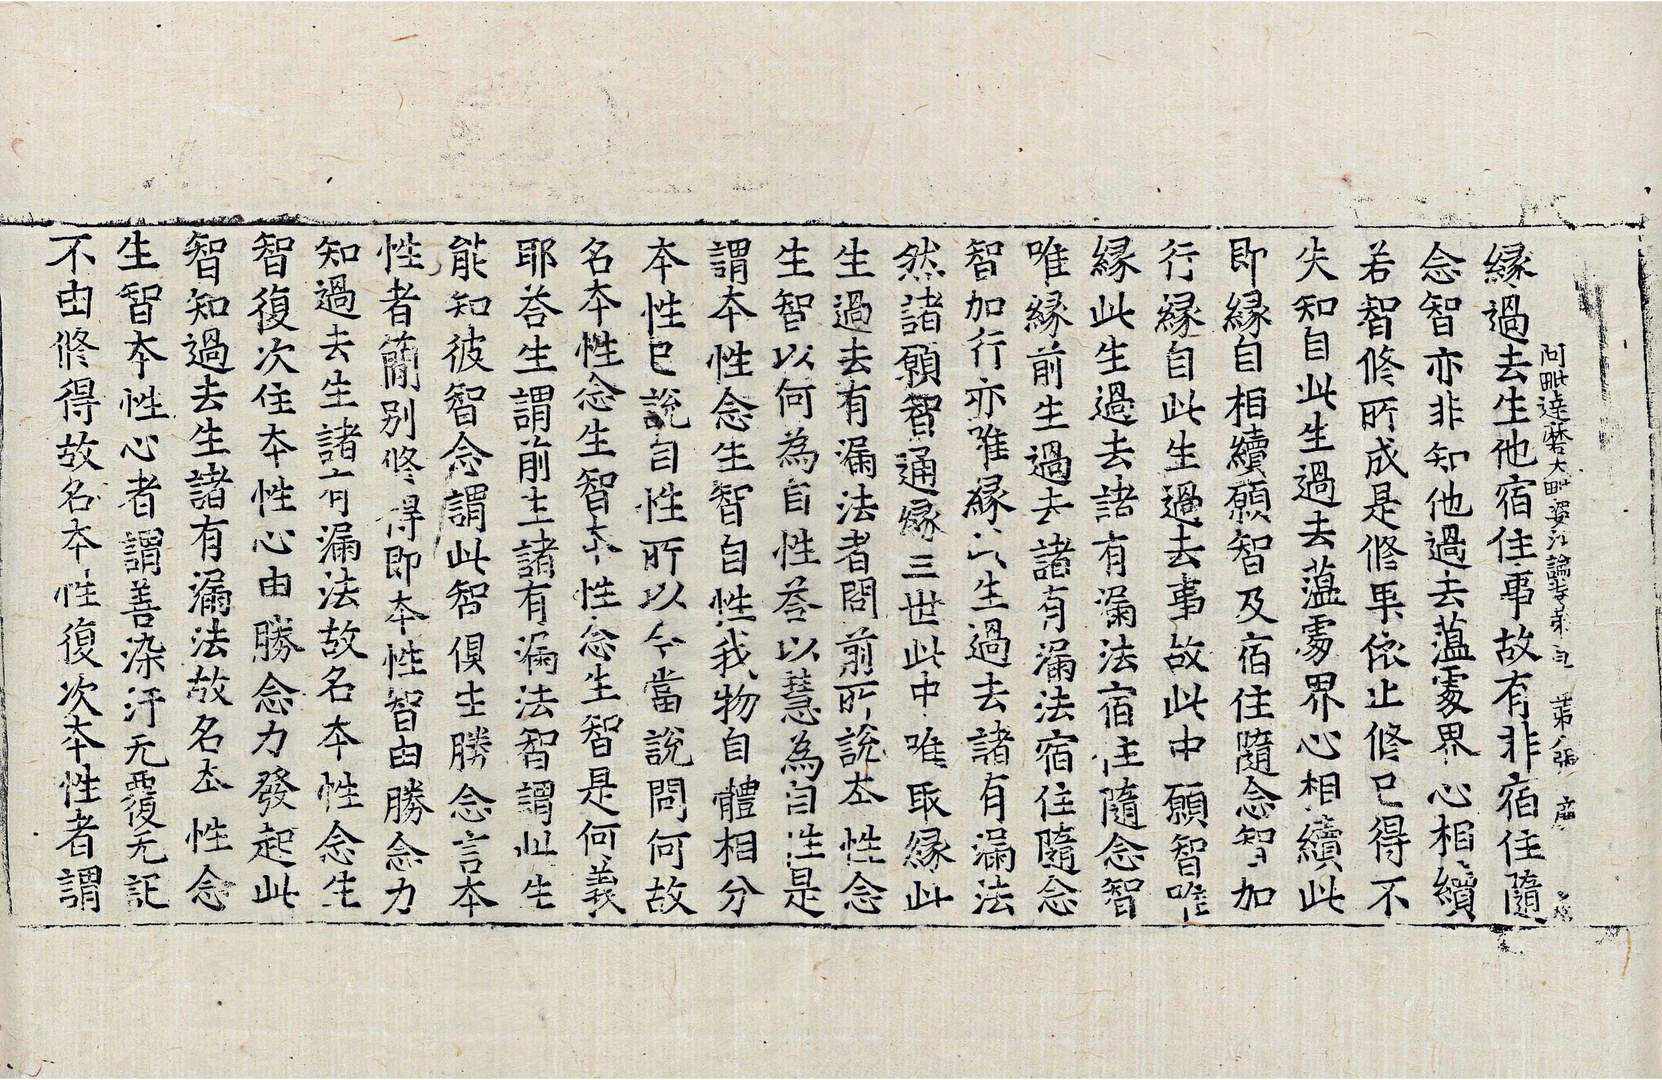 阿毗達磨大毗婆沙論卷第一百　第八張　廉
緣過去生他宿住事故有非宿住隨
念智亦非知他過去蘊處界心相續
若智修所成是修果依止修已得不
失知自此生過去蘊處界心相續此
即緣自相續願智及宿住隨念智加
行緣自此生過去事故此中願智唯
緣此生過去諸有漏法宿住隨念智
唯緣前生過去諸有漏法宿住隨念
智加行亦唯緣此生過去諸有漏法
然諸願智通緣三世此中唯取緣此
生過去有漏法者問前所說本性念
生智以何為自性荅以慧為自性是
謂本性念生智自性我物自體相分
本性已說自性所以今當說問何故
名本性念生智本性念生智是何義
耶荅生謂前生諸有漏法智謂此生
能知彼智念謂此智俱生勝念言本
性者簡別修得即本性智由勝念力
知過去生諸有漏法故名本性念生
智復次住本性心由勝念力發起此
智知過去生諸有漏法故名本性念
生智本性心者謂善染汙无覆无記
不由修得故名本性復次本性者謂